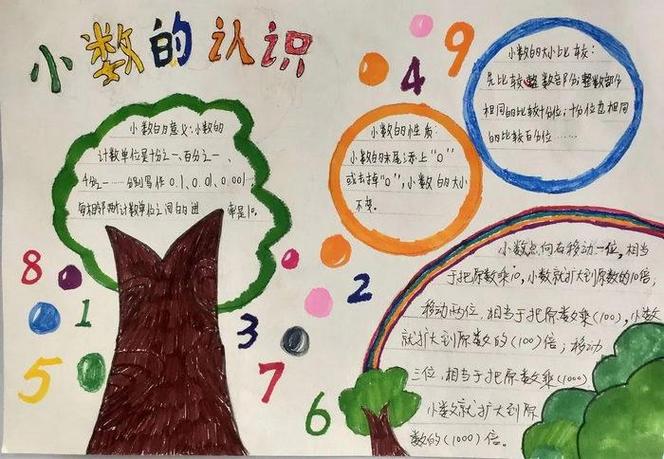 小数的认识
小数的意义:小数的
计数单位是十分之一、百分之一、
千分之一……分别写作0.1、0.01、0.001
每相邻两个计数单位之间的进率是10。
小数的性质:
小数的末尾添上"0"
或去掉"0",小数的大小
不变。
小数的大小比较:
先比较整数部分;整数部分
相同的比较十分位;十分位直相同
的比较百分位……
小数点向右移动一位,相当
于把原数乘10,小数就扩大到原数的10倍;
移动两位,相当于把原数乘(100),小数
就扩大到原数的(100)倍;移动
三位,相当于把原数乘(1000)
小数就扩大到原
数的(1000)倍。
9
4
8
1
5
2
3
7
6